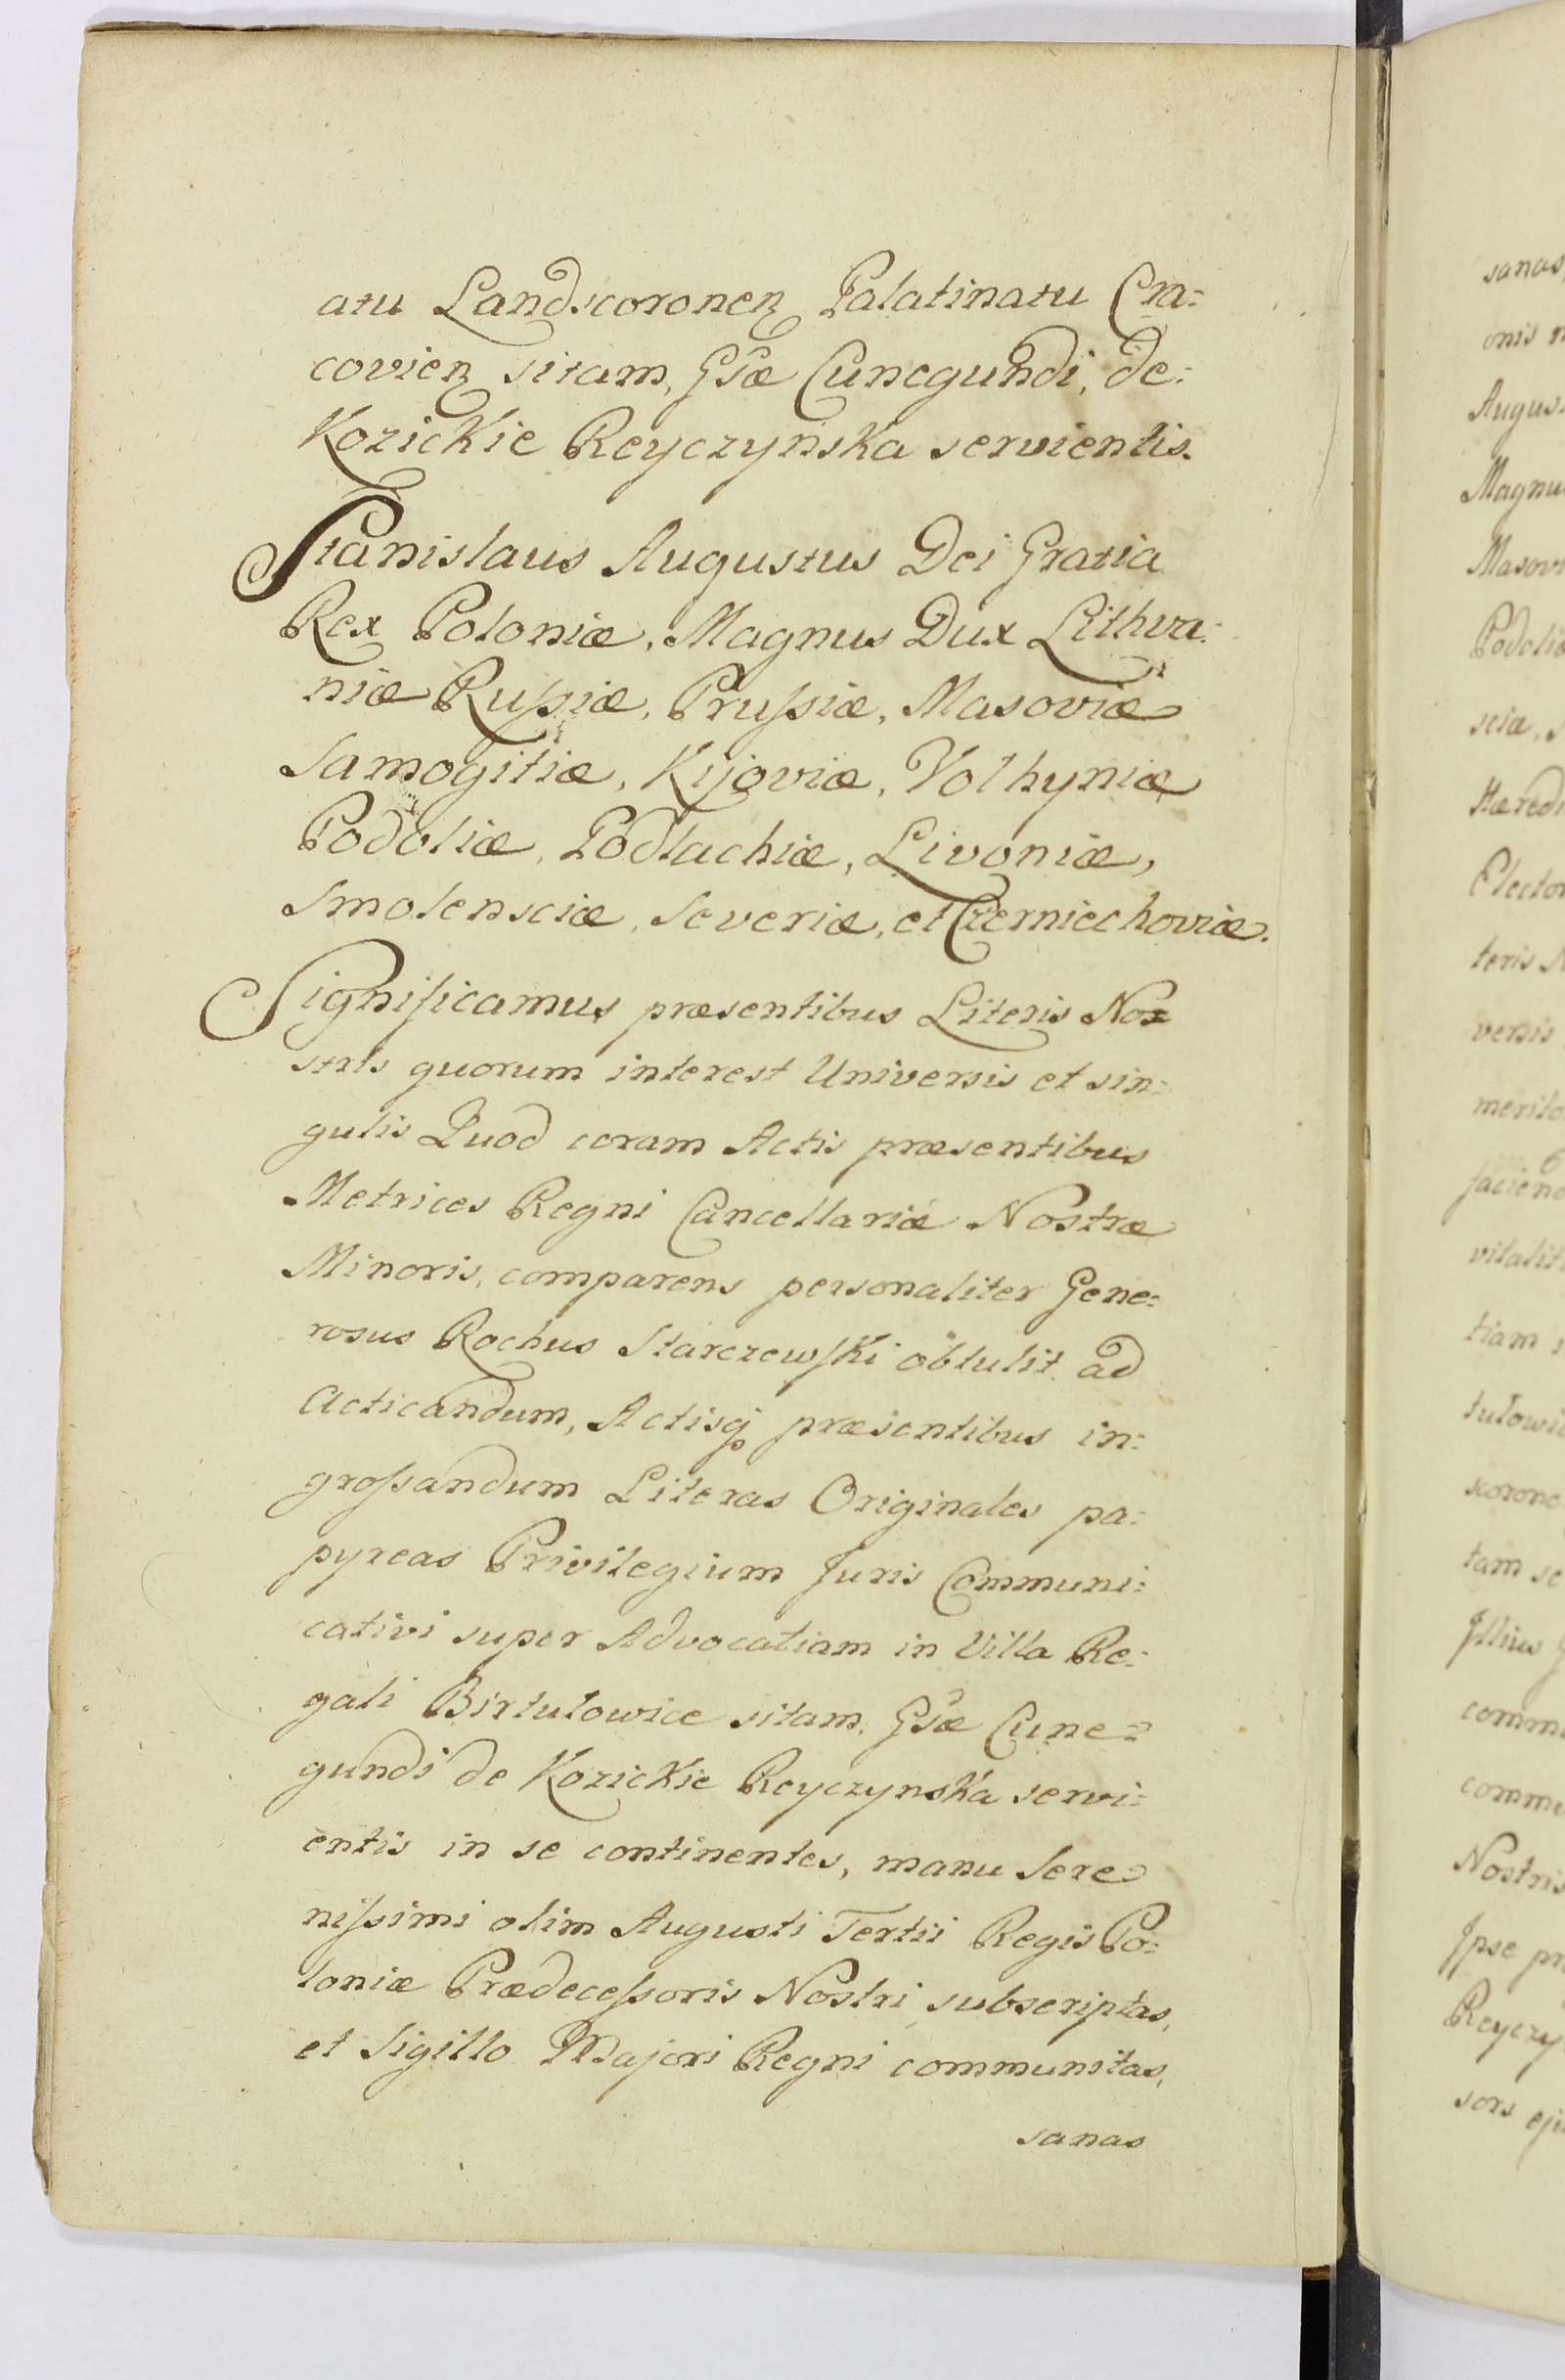 atu Landscoronen Palatinatu Cra:
covien sitam, Gsæ Cunegundi, de:
Kozickie Reyczynska servientis.
Stanislaus Augustus Dei Gratia
Rex Poloniæ, Magnus Dux Lithva:
niæ Russiæ, Prussiæ, Masoviæ
Samogitiæ, Kijoviæ, Volhyniæ
Podoliæ, Podlachiæ, Livoniæ,
Smolensciæ, Severiæ, et Czerniechoviæ.
Significamus præsentibus Literis No=
stris quorum interest Universis et sin:
gulis Quod coram Actis præsentibus
Metrices Regni Cancellariæ Nostræ
Minoris, comparens personaliter Gene:
rosus Rochus Starczewski obtulit ad
acticandum, Actisq præsentibus in:
grossandum Literas Originales pa:
pyreas Privilegium Juris Communi:
cativi super Advocatiam in Villa Re:
gali Birtulowice sitam. Gsæ Cune=
gundi de Kozickie Reyczynska servi:
entis in se continentes, manu Sere=
nissimi olim Augusti Tertii Regis Po:
loniæ Prædecessoris Nostri subscriptas,
et Sigillo Majori Regni communitas,
sanas
sanas
onis
Augus
Magnu
Masovi
Podoliæ
sciæ, S
Hæredi
Elector
teris N
versis
merito
faciend
vitalit
tiam
tulowic
scorone
tam se
Illius
comm
commu
Nostris
Ipse pr
Reyczy
sors eju